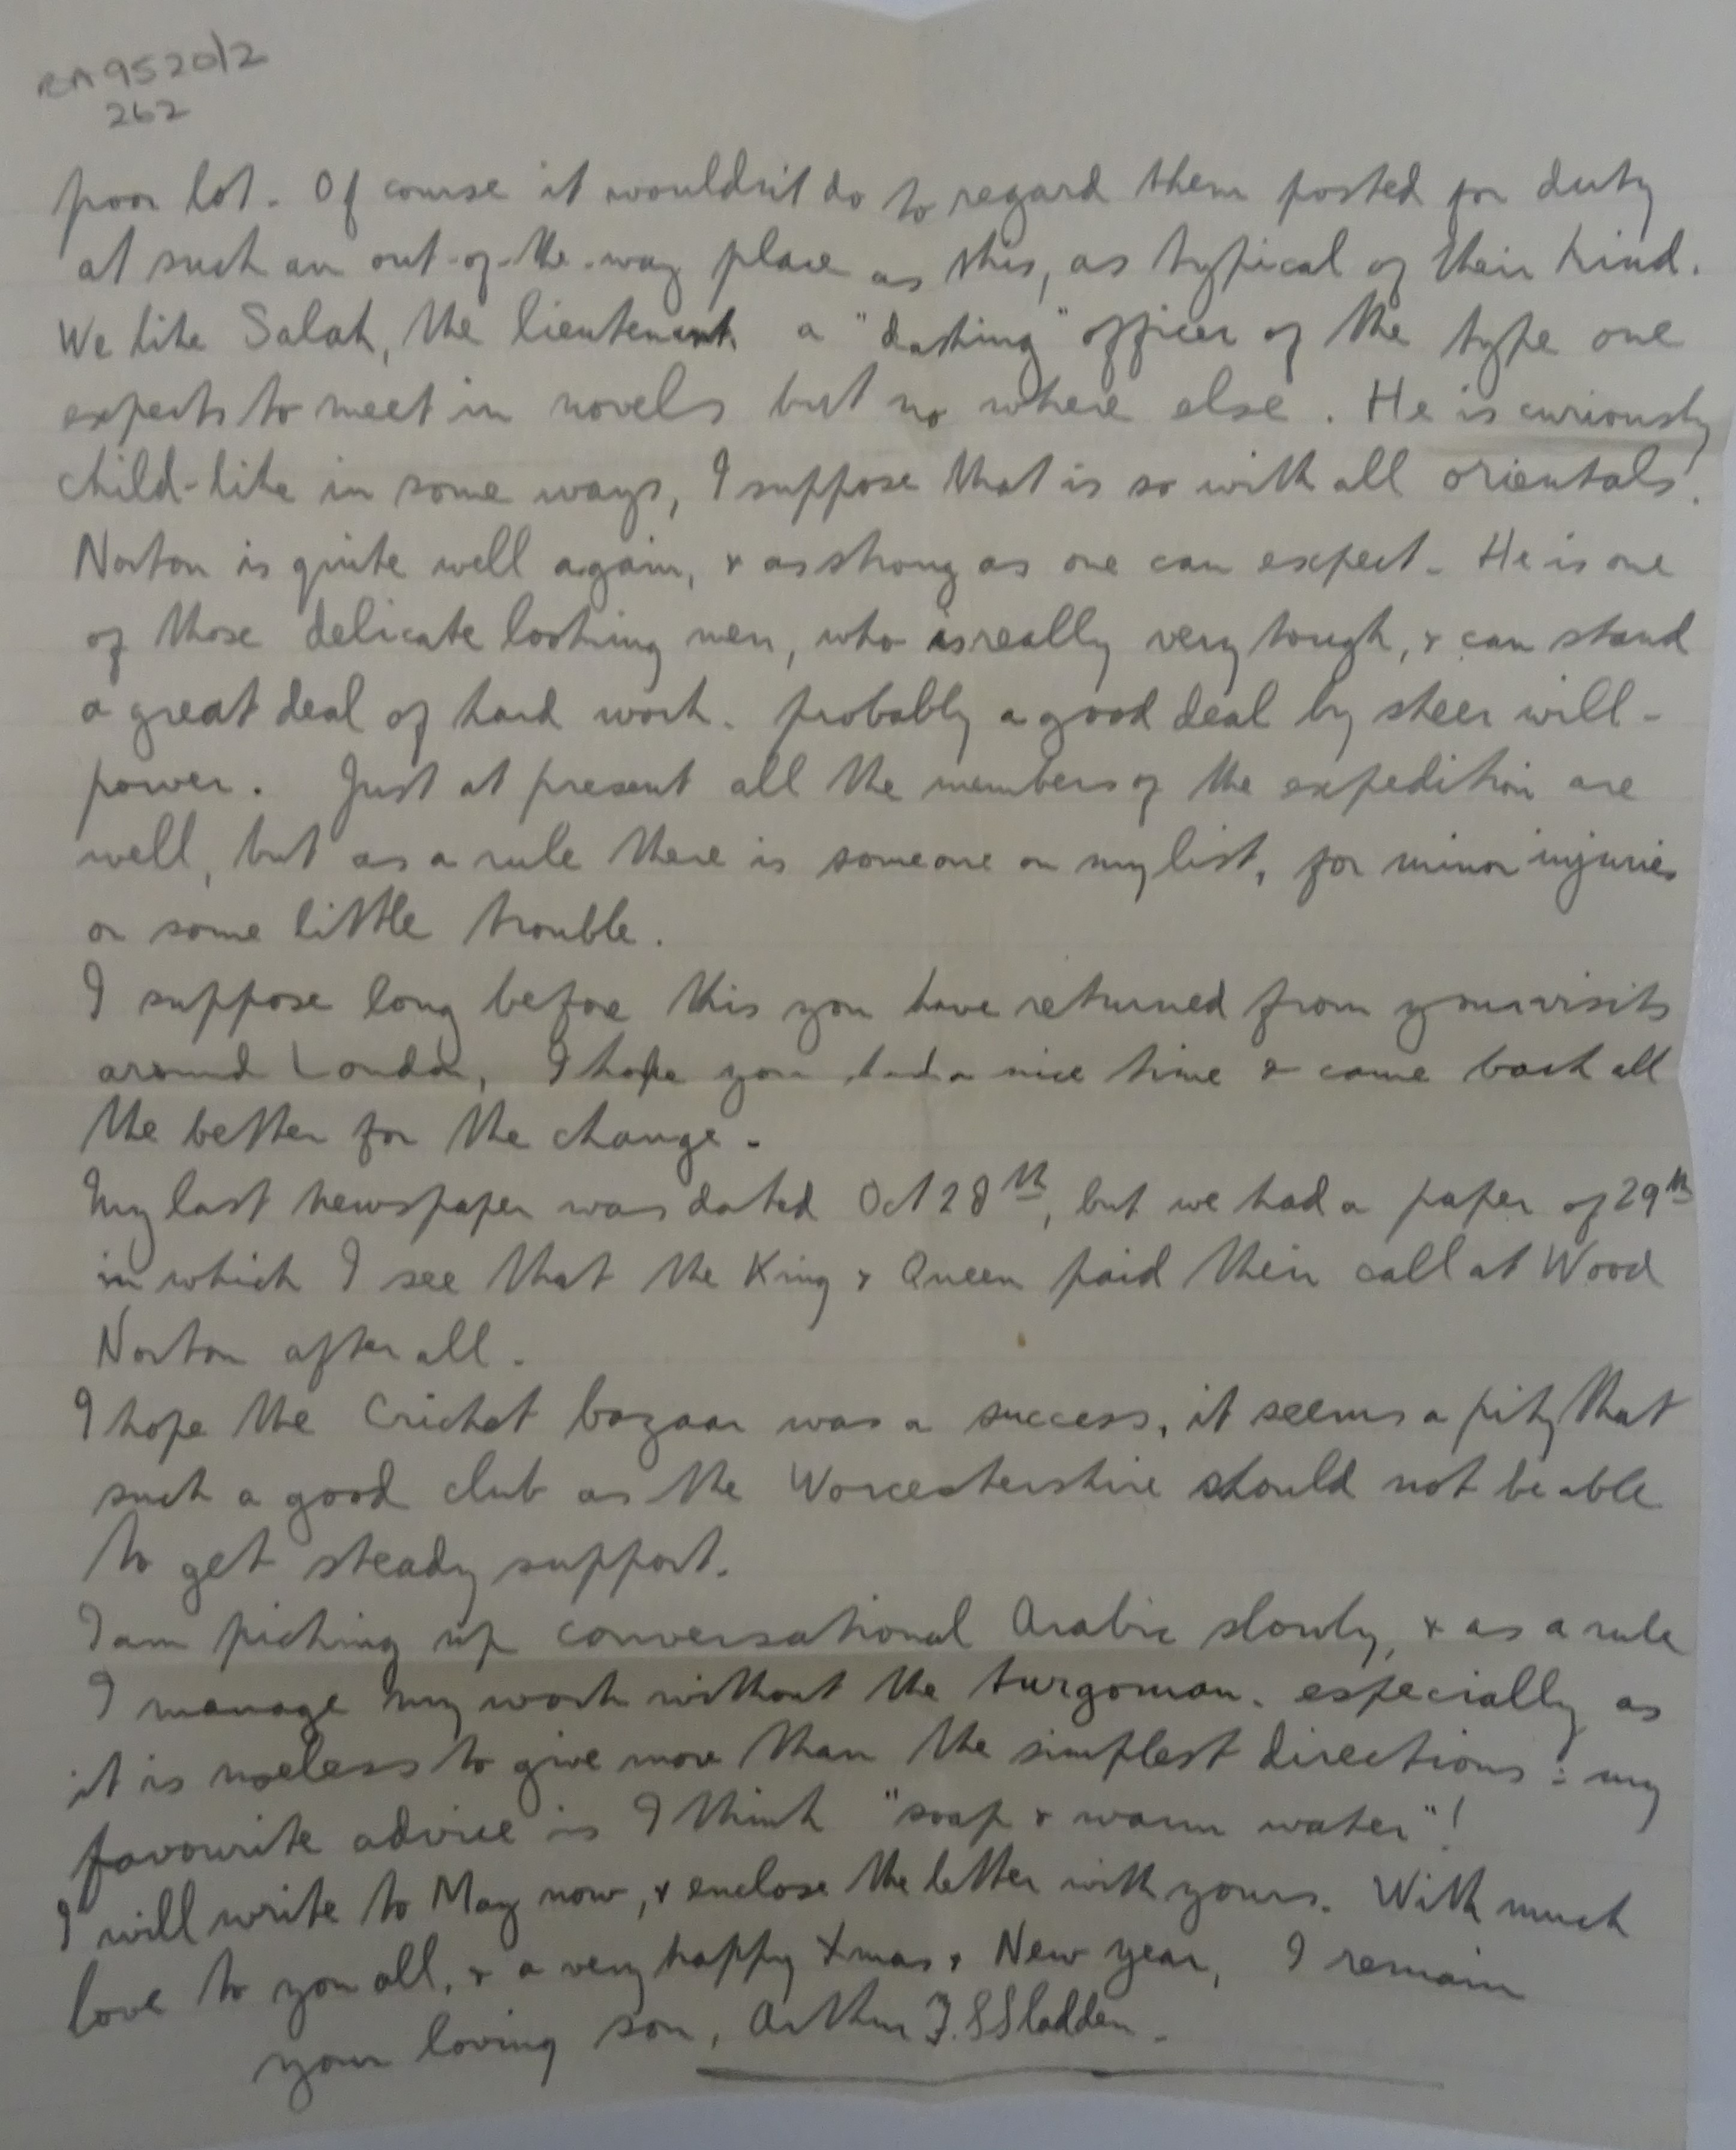 BA9520/2
262
poor lot. Of course it wouldn't do to regard them posted for duty
at such an out-of-the-way place as this, as typical of their kind.
We like Salah, the lieutenant a "dashing" officer of the type one
expects to meet in novels but no where else. He is curiously
child-like in some ways, I suppose that is so with all orientals.
Norton is quite well again, & as strong as one can expect. He is one
of those delicate looking men, who is really very tough, & can stand
a great deal of hard work. probably a good deal by sheer will-
power. Just at present all the members of the expedition are
well, but as a rule there is someone on my list, for minor injuries
or some little trouble.
I suppose long before this you have returned from your visits
around London, I hope you had a nice time & came back all
the better for the change.
My last newspaper was dated Oct 28th, but we had a paper of 29th
in which I see that the King & Queen paid their call at Wood
Norton after all.
I hope the Cricket bazaar was a success, it seems a pity that
such a good club as the Worcestershire should not be able
to get steady support.
I am picking up conversational Arabic slowly, & as a rule
I manage my work without the turgoman. especially as
it is useless to give more than the simplest directions: my
favourite advice is I think "soap & warm water"!
I will write to May now, & enclose the letter with yours. With much
love to you all, & a very happy Xmas & New year, I remain
your loving son, Arthur F. S Sladden.